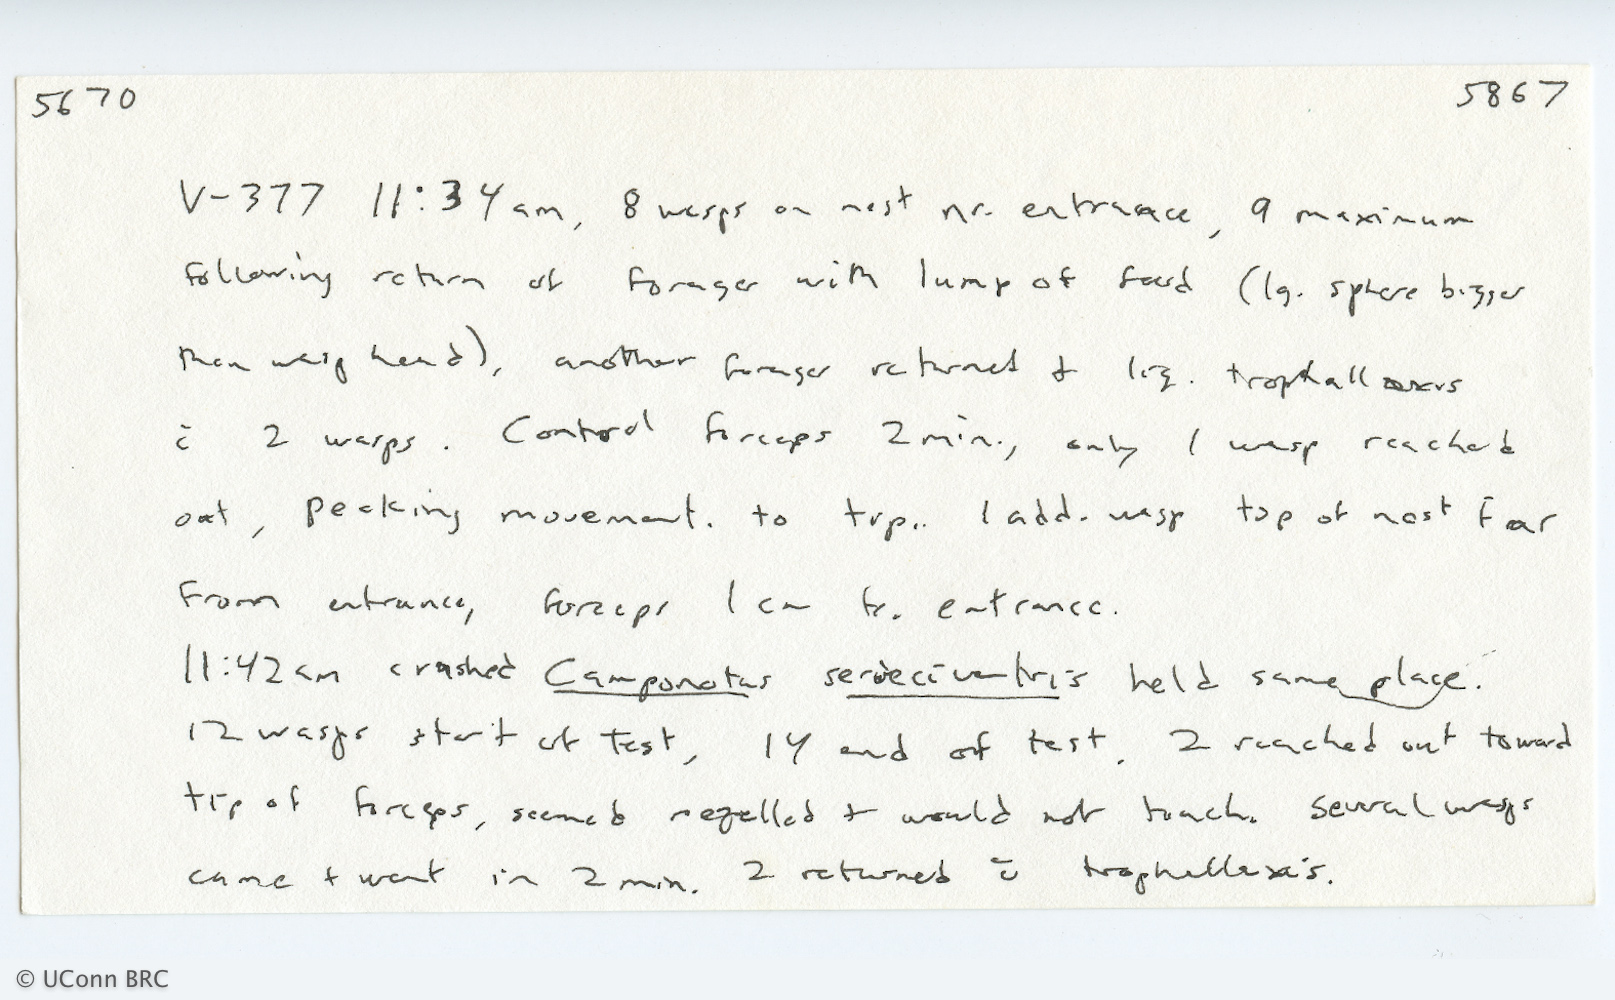 5670 5867
V-377 11:34am, 8 wasps on nest nr. entrance, 9 maximum
following return of forager with lump of food (lg. sphere bigger
than wasp head), another forager returned + liq. trophallaxis
c̄ 2 wasps. Control forceps 2min., only 1 wasp reached
out, pecking movement. to tip.. 1 add. wasp top of nest far
from entrance, forceps 1 cm fr. entrance.
11:42am crushed Camponotus sericeiventris held same place.
12 wasps start of test, 14 end of test. 2 reached out toward
tip of forceps, seemed repelled + would not touch. Several wasps
came + went in 2 min. 2 returned c̄ trophallaxis.
© UConn BRC